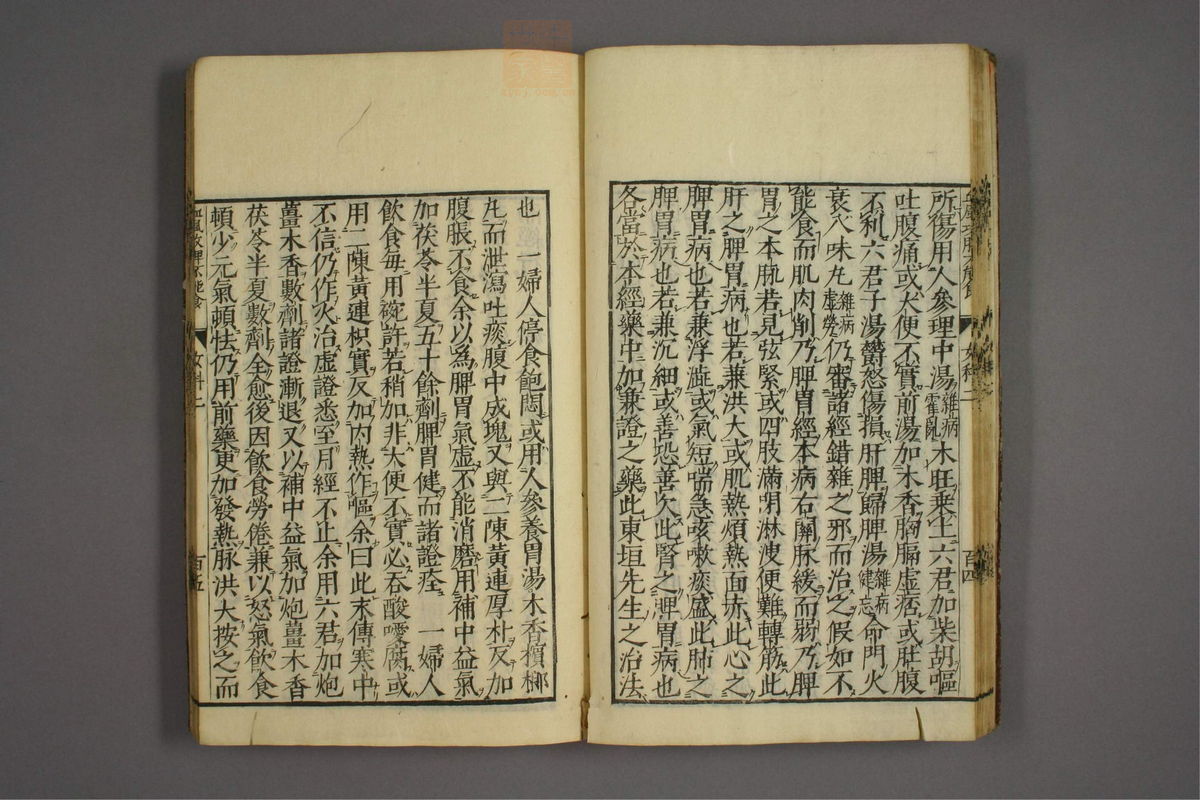 所傷用人參理中湯雜病霍亂木旺乘土六君加柴胡嘔
吐腹痛或大便不實前湯加木香胸膈虛痞或肚腹
不利六君子湯鬱怒傷損肝脾歸脾湯雜病健忘命門火
衰八味丸雜病虛勞仍審諸經錯雜之邪而治之假如不
能食而肌肉削乃脾胃經本病右關脉緩而弱乃脾
胃之本脉若見弦緊或四肢滿閉淋溲便難轉筋此
肝之脾胃病也若兼洪大或肌熱煩熱面赤此心之
脾胃病也若兼浮澁或氣短喘急咳嗽痰盛此肺之
脾胃病也若兼沉細或善恐善欠此腎之脾胃病也
各當於本經藥中加兼證之藥此東垣先生之治法
女科二
百四
也一婦人停食飽悶或用人參養胃湯木香檳榔
丸而泄瀉吐痰腹中成塊又與二陳黃連厚朴反加
腹脹不食余以爲脾胃氣虛不能消磨用補中益氣
加茯苓半夏五十餘劑脾胃健而諸證痊 一婦人
飲食每用碗許若稍加非大便不實必吞酸噯腐或
用二陳黃連枳實反加内熱作嘔余曰此末傳寒中
不信仍作火治虛證悉至月經不止余用六君加炮
薑木香數劑諸證漸退又以補中益氣加炮薑木香
茯苓半夏數劑全愈後因飲食勞倦兼以怒氣飲食
頓少元氣頓怯仍用前藥更加發熱脉洪大按之而
女科二
百五